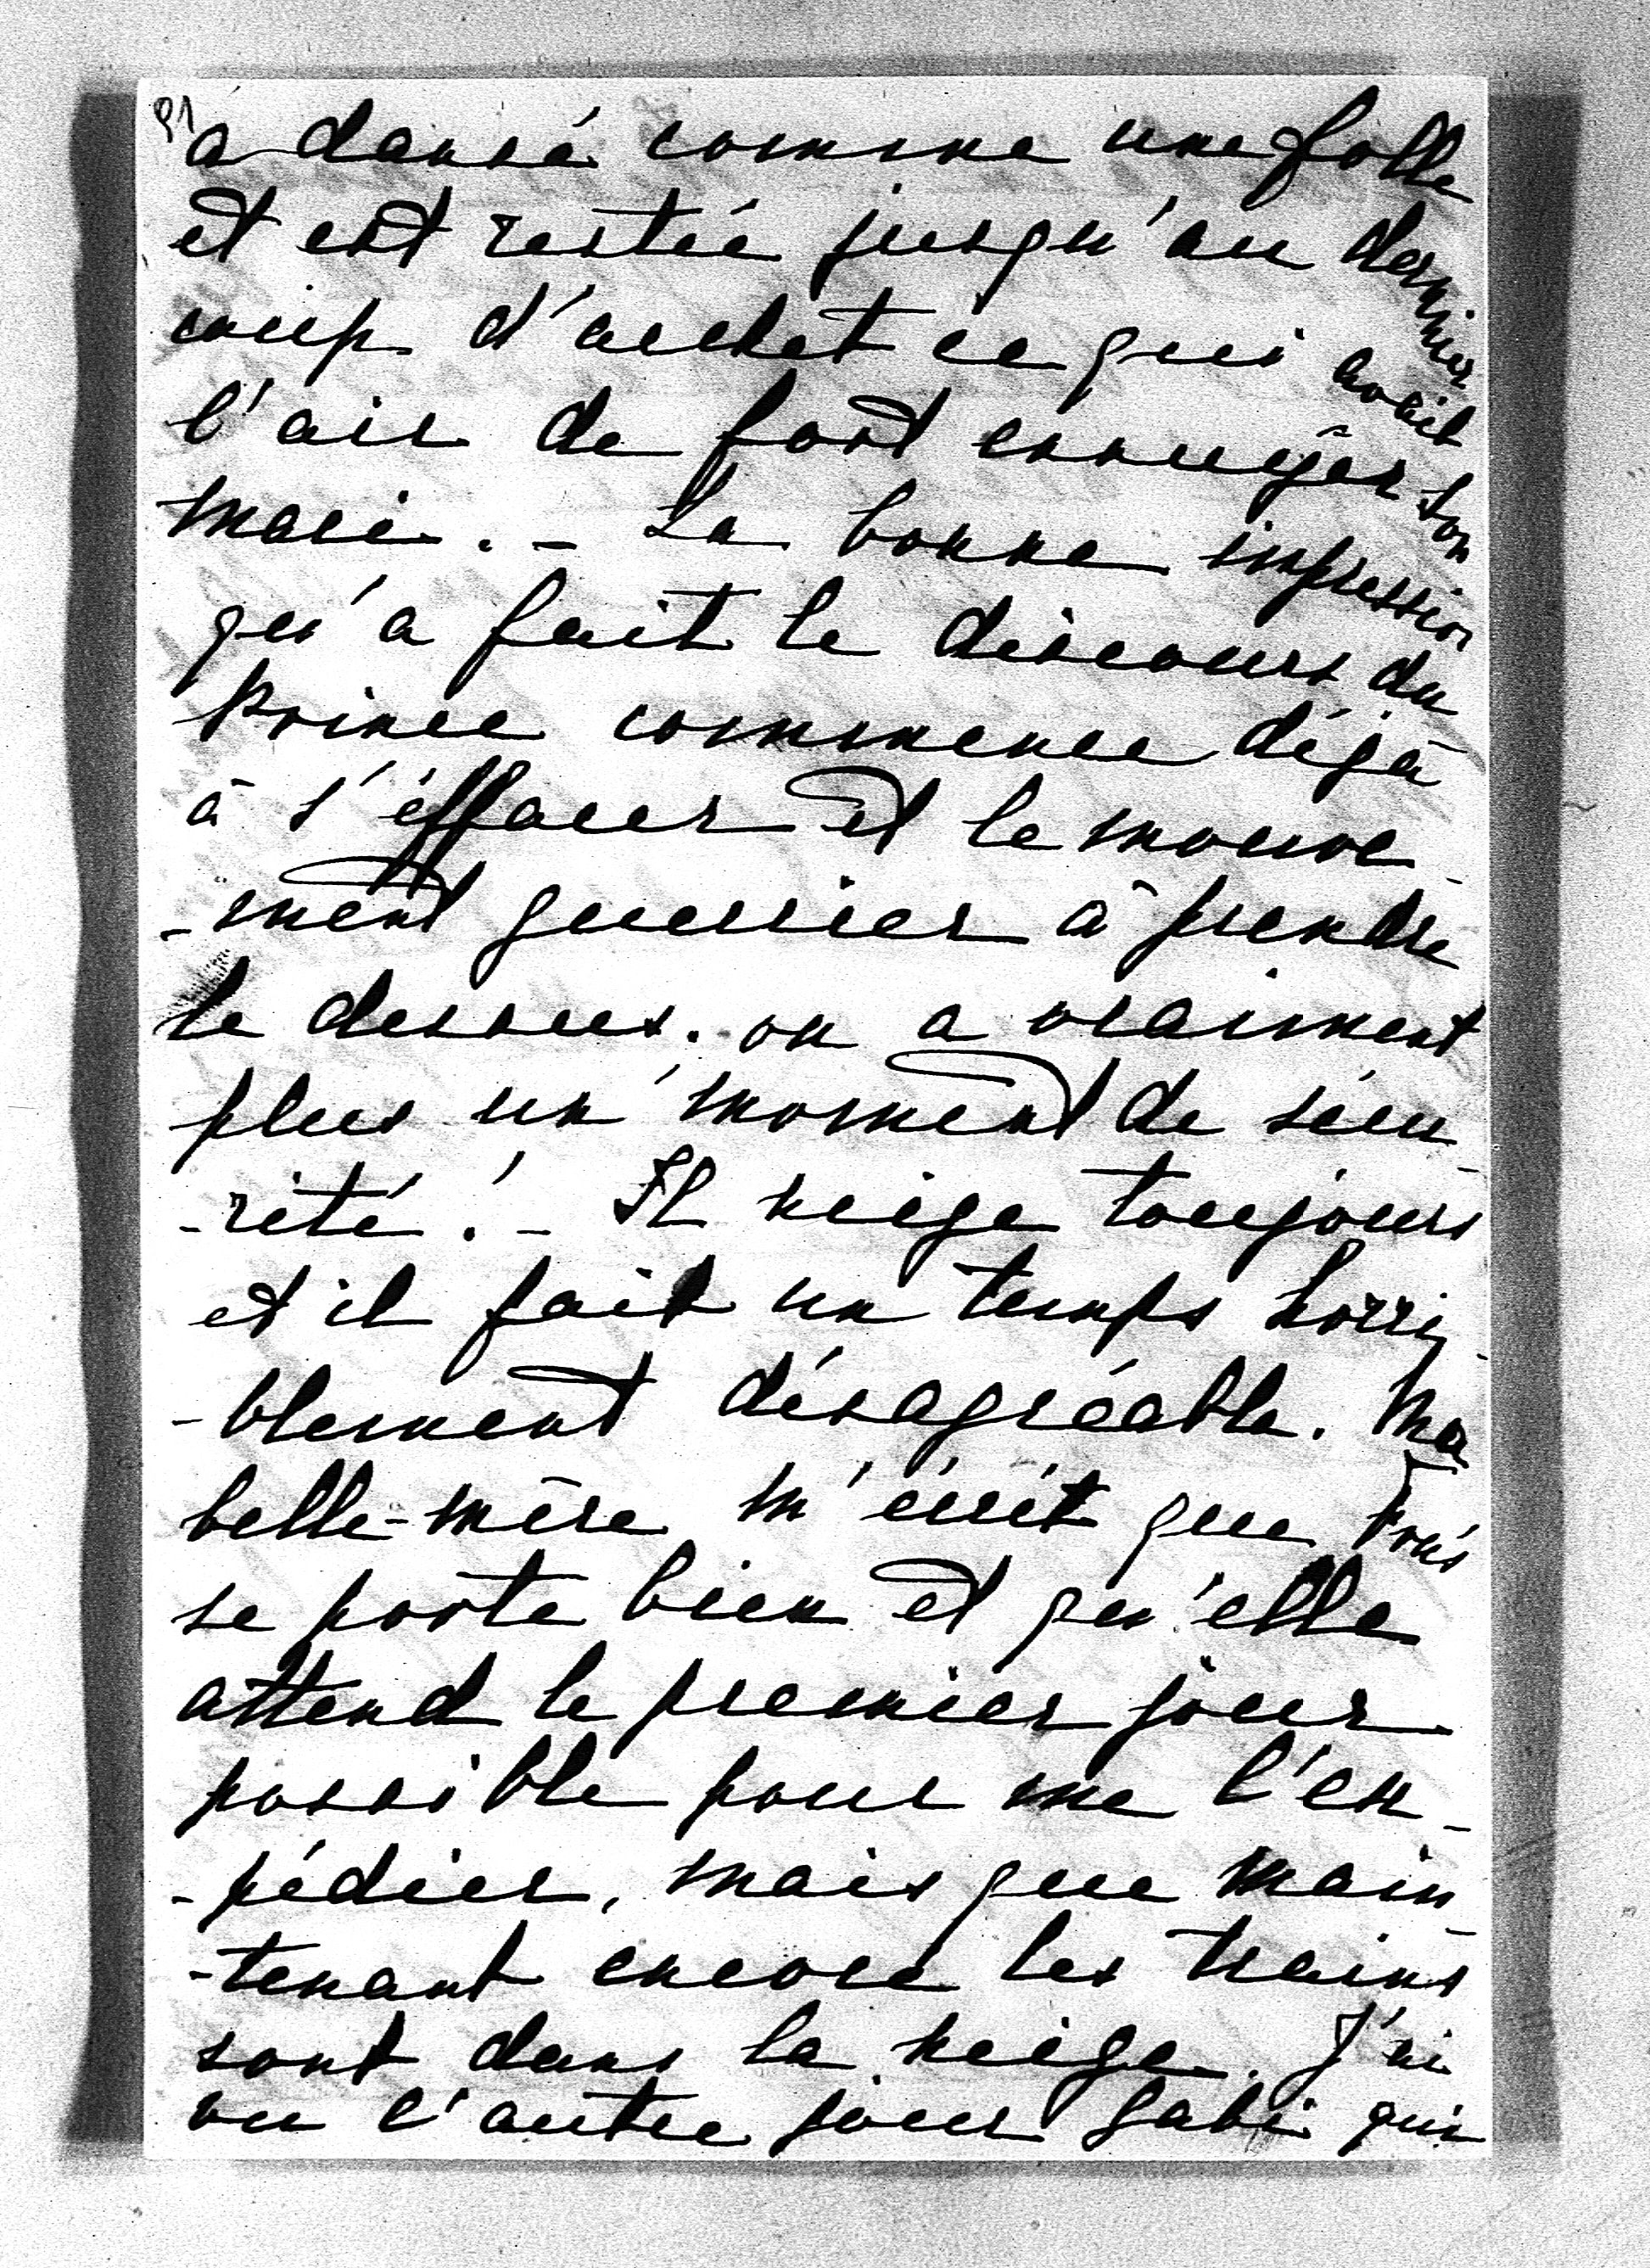 91
a dansé comme une folle
et est restée jusqu'au dernier
coup d'archet ce qui avait
l'air de fort ennuyer son
mari. - La bonne impression
qu'a fait le discours du
Prince commence déjà
à s'éffacer et le mouve-
-ment guerrier à prendre
le dessus. on a vraiment
plus un moment de sécu-
-rité! - Il neige toujours
et il fait un temps horri-
-blement désagréable. Ma
belle-mère m'écrit que
se porte bien et qu'elle
attend le premier jour
possible pour me l'ex-
-pédier, mais que main-
-tenant encore les trains
sont dans la neige. J'ai
vu l'autre jour Gabi qui